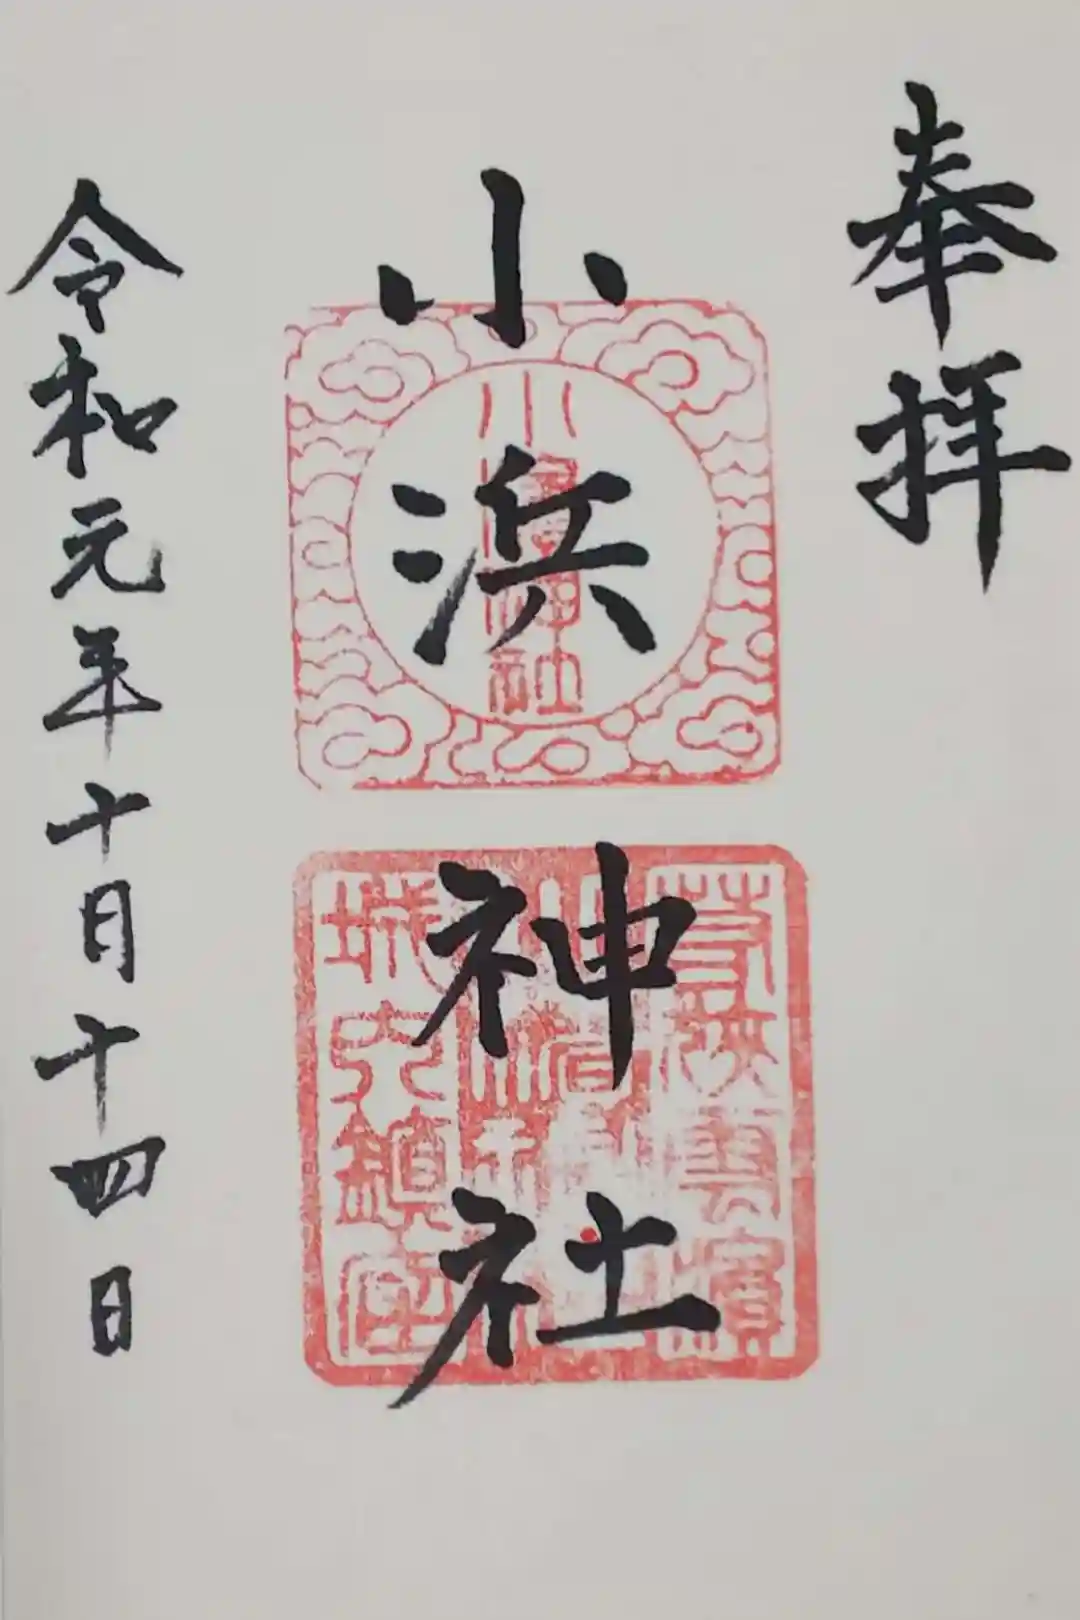 奉拝
小浜神社
小濱神社
令和元年十月十四日